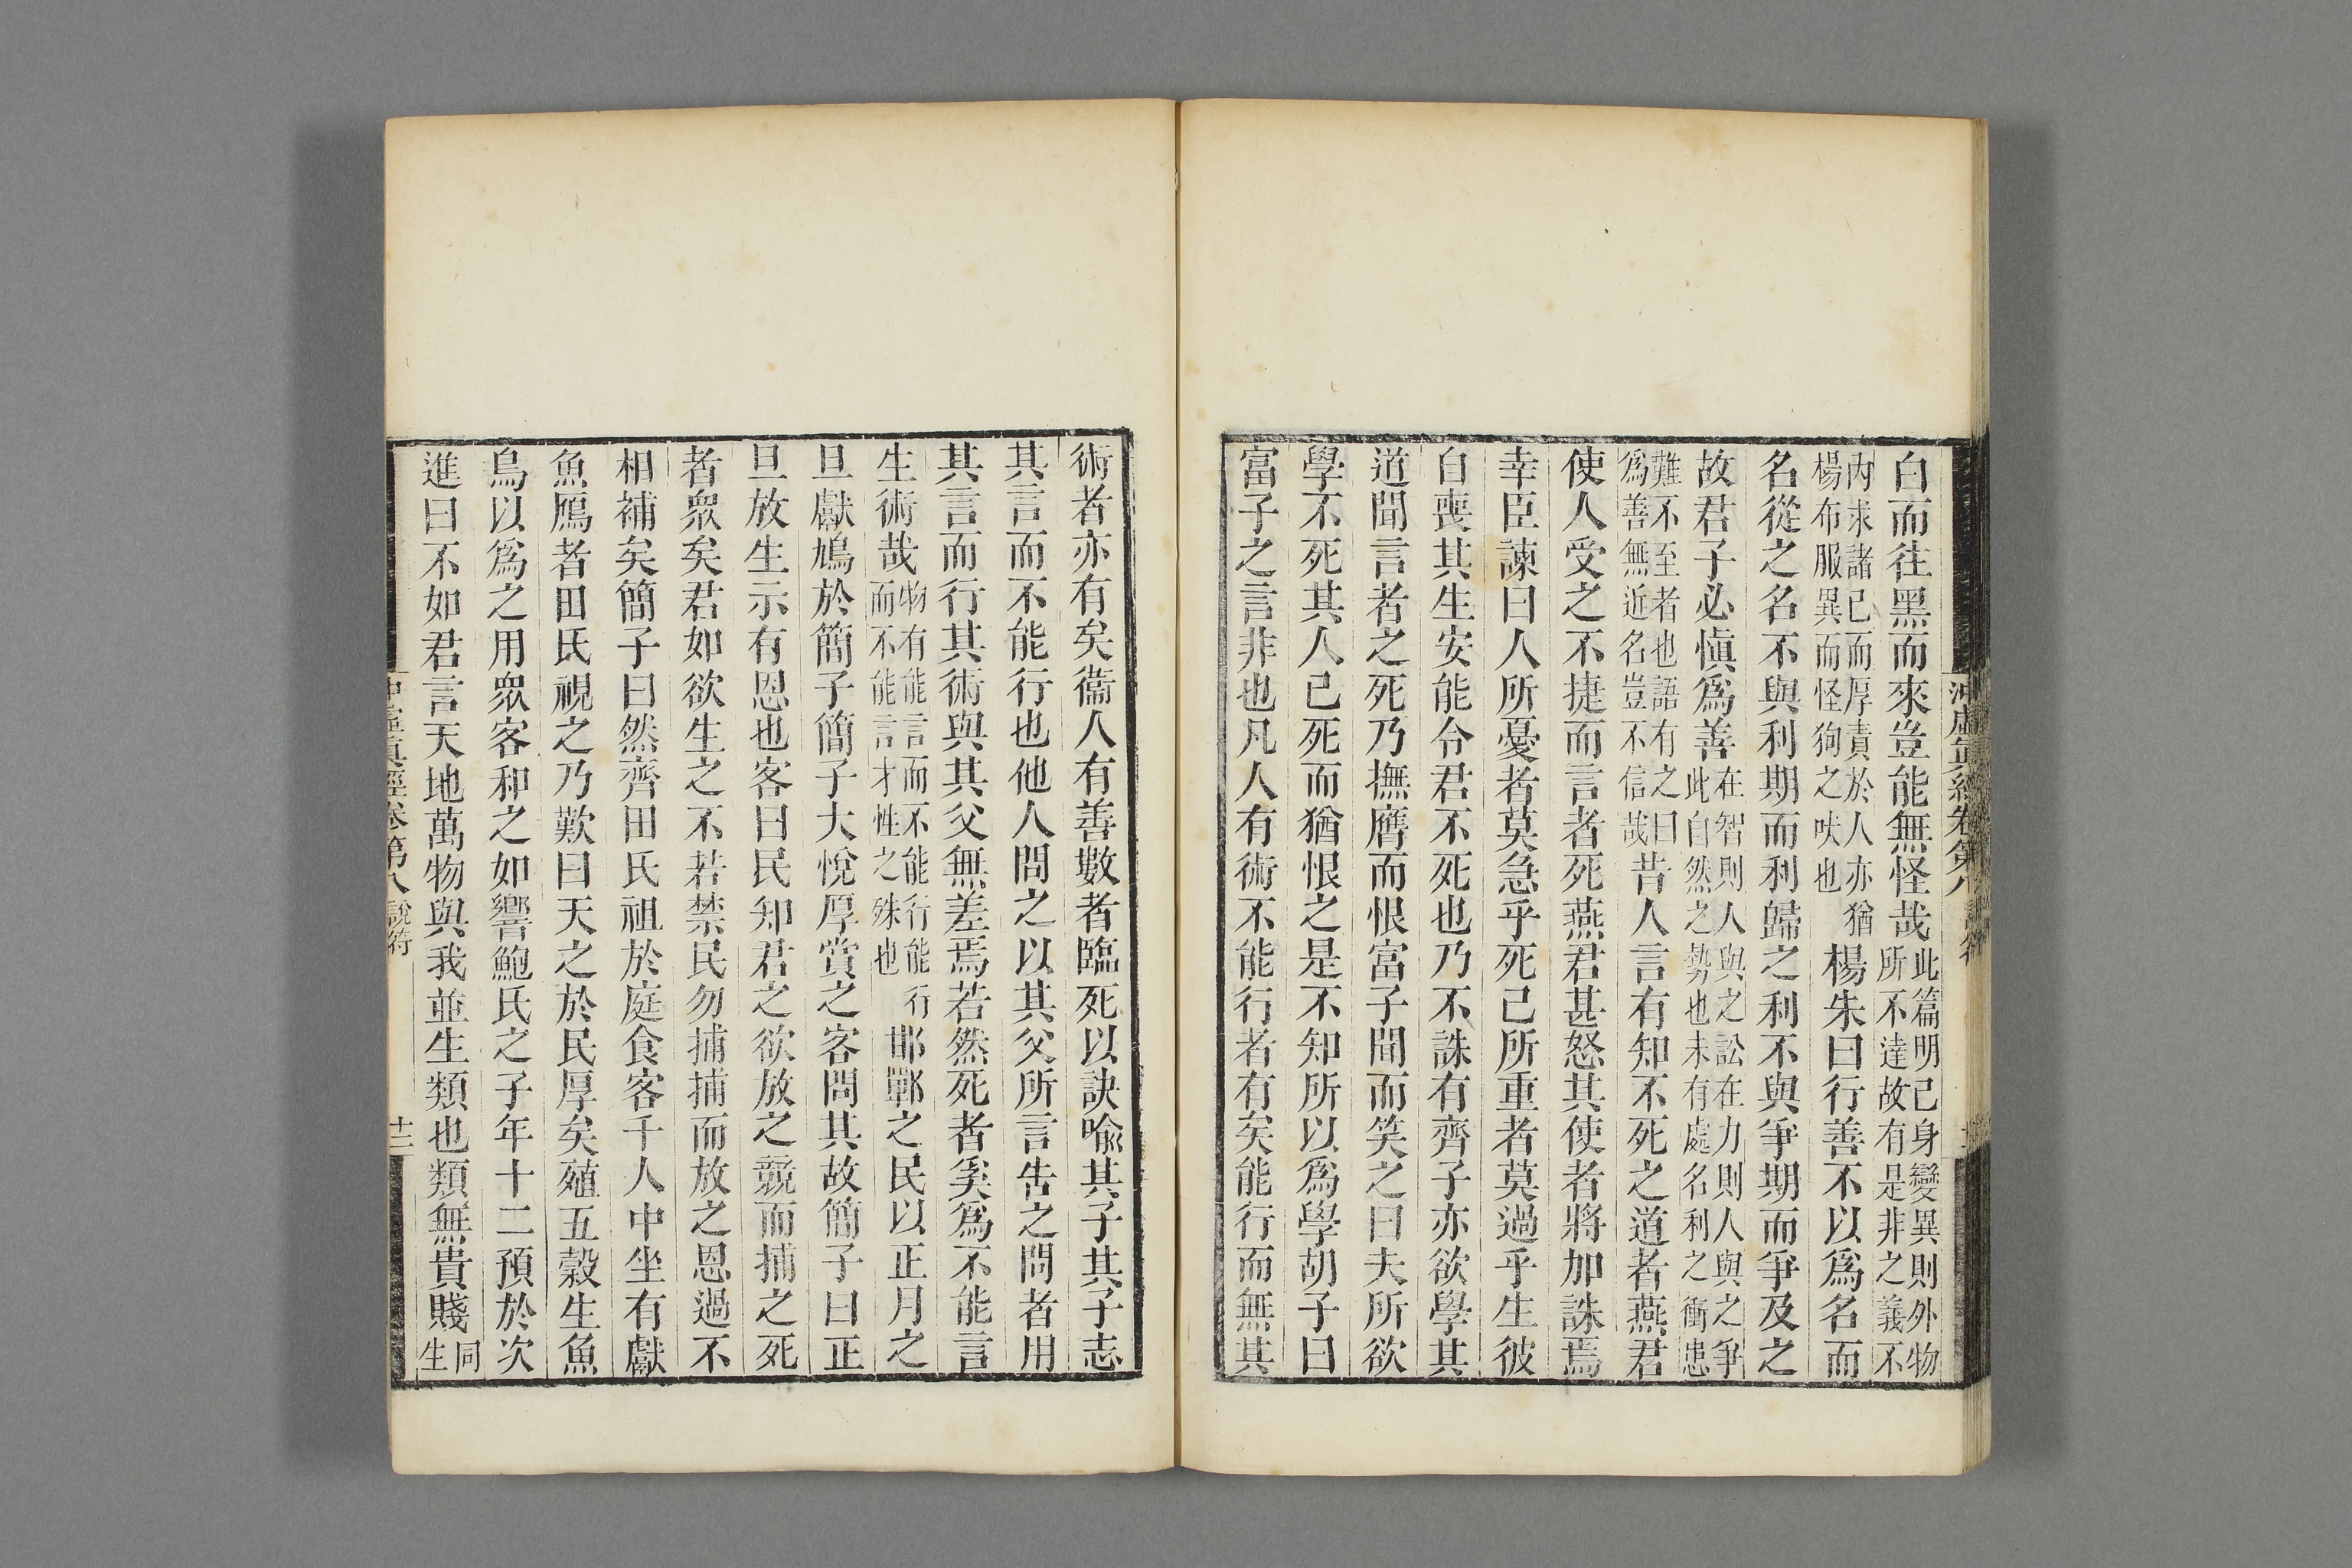 白而往黑而來豈能無怪哉此篇明己身變異則外物所不達故有是非之義不
內求諸己而厚責於人亦猶楊布服異而怪狗之吠也楊朱曰行善不以爲名而
名從之名不與利期而利歸之利不與爭期而爭及之
故君子必愼爲善在智則人與之訟在力則人與之爭此自然之勢也未有處名利之衝患
難不至者也語有之曰爲善無近名豈不信哉昔人言有知不死之道者燕君
使人受之不捷而言者死燕君甚怒其使者將加誅焉
幸臣諫曰人所憂者莫急乎死己所重者莫過乎生彼
自喪其生安能令君不死也乃不誅有齊子亦欲學其
道聞言者之死乃撫膺而恨富子聞而笑之曰夫所欲
學不死其人已死而猶恨之是不知所以爲學胡子曰
富子之言非也凡人有術不能行者有矣能行而無其
冲虛眞經卷第八 說符
術者亦有矣衞人有善數者臨死以訣喻其子其子志
其言而不能行也他人問之以其父所言告之問者用
其言而行其術與其父無差焉若然死者奚爲不能言
生術哉物有能言而不能行能行而不能言才性之殊也邯鄲之民以正月之
旦獻鳩於簡子簡子大悅厚賞之客問其故簡子曰正
旦放生示有恩也客曰民知君之欲放之競而捕之死
者衆矣君如欲生之不若禁民勿捕捕而放之恩過不
相補矣簡子曰然齊田氏祖於庭食客千人中坐有獻
魚鴈者田氏視之乃歎曰天之於民厚矣殖五穀生魚
鳥以爲之用衆客和之如響鮑氏之子年十二預於次
進曰不如君言天地萬物與我並生類也類無貴賤同生
冲虛眞經卷第八 說符 十三